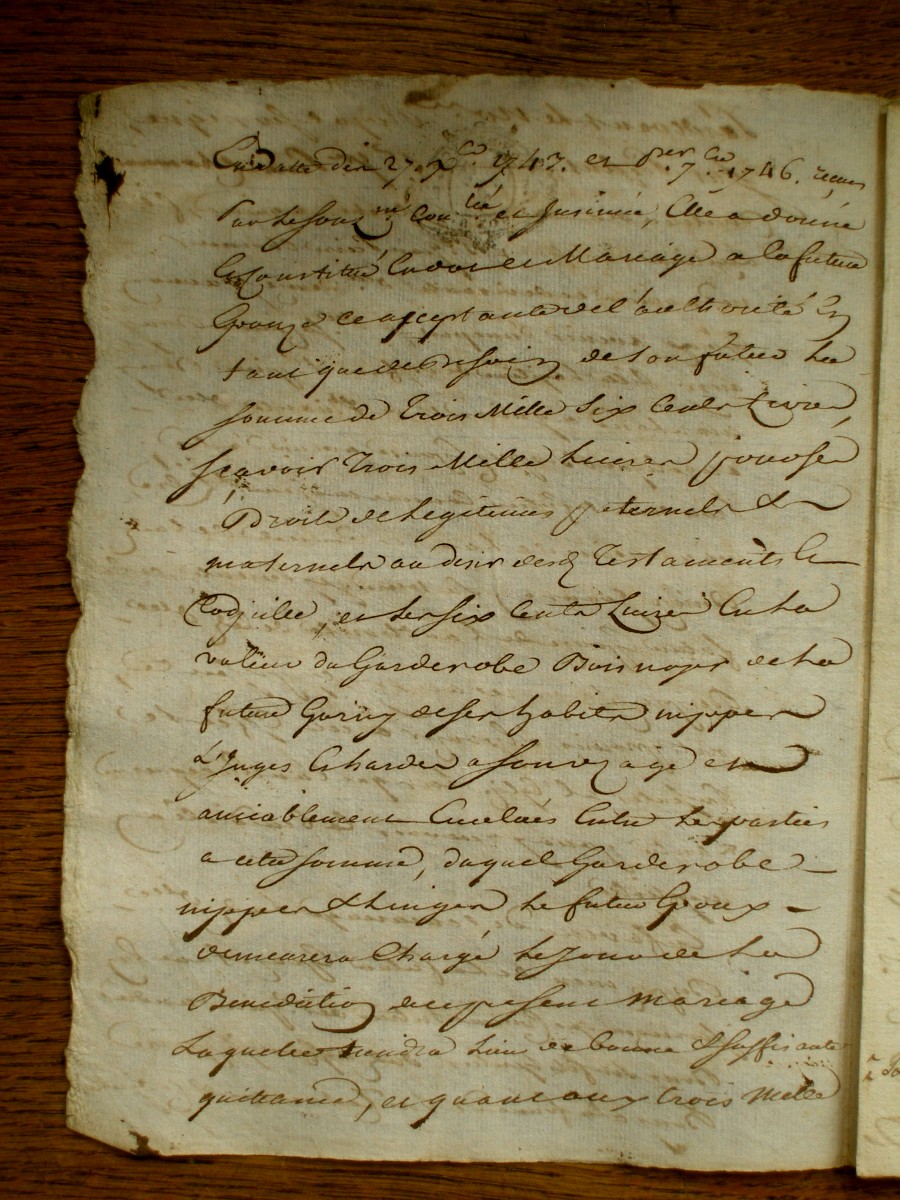 En datte du 27. X.bre 1743. et 1er 7.bre 1746. recus
Par le sous.né Con.lé et Insinué, Elle a donné
et Constitué En dot et Mariage a la future
Epouze acceptante de l'authorité En
tant que de Besoin de son futur La
somme de Trois Mille Six Cents Livres
scavoir Trois Mille Livres pour ses
Droits de Legitimes paternels &
maternels au desir desd Testaments et
Codicille, et Les six Cents Livres En La
valeur du Garderobe Bois noyer de La
future Garny de ses habits nippes
Linges et hardes a son uzage et
amiablement Evalués Entre Les parties
a cette somme, duquel Garderobe
nippes & Linges Le futur Epoux
demeurera Chargé Le Jour de La
Benediction du present Mariage
Laquelle tiendra Lieu de bonne & suffisante
quittance, et quant aux trois Mille